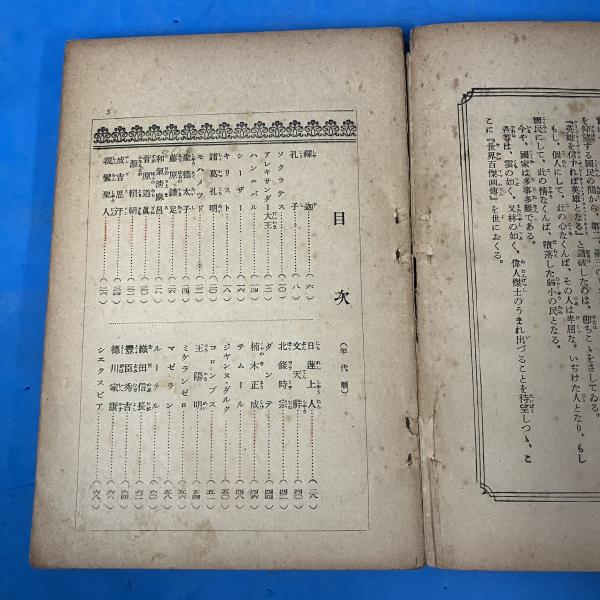 を仰望する國民の間から、第二、第三の
『英雄を信ずれば英雄となる』と道破したのは、卽ちこゝをさしてゐる。
もし、個人にして、此の心なくんば、その人は卑屈な、いぢけた人となり、もし
國民にして、此の情なくんば、墮落した弱小の民となる。
今や、國家は多事多難である。
雲の如く、又林の如く、偉人傑士のうまれ出づることを待望しつゝ、こ
こに『世界百傑画傳』を世におくる。
目次
(年代順)
釋迦……(六)
孔子……(八)
ソクラテス……(一〇)
アレキサンダー大王……(一二)
ハンニバル……(一四)
シーザー……(一六)
キリスト……(一八)
諸葛孔明……(二〇)
モハメツド……(二二)
聖德太子……(二四)
藤原鎌足……
和氣淸磨呂……
菅原道眞……
源賴朝……
成吉思汗……
親鸞聖人……
日蓮上人……
文天祥……(四〇)
北條時宗……
ダンテ……(四四)
楠木正成……(四六)
チムール……(四八)
ジヤンヌ・ダルク……(五〇)
コロンブス……
王陽明……(五四)
ミケランゼロ……(五六)
マゼラン……(五八)
ルーテル……(六〇)
織田信長……(六二)
豐臣秀吉……(六四)
德川家康……(六六)
シエクスピア……(六八)
5